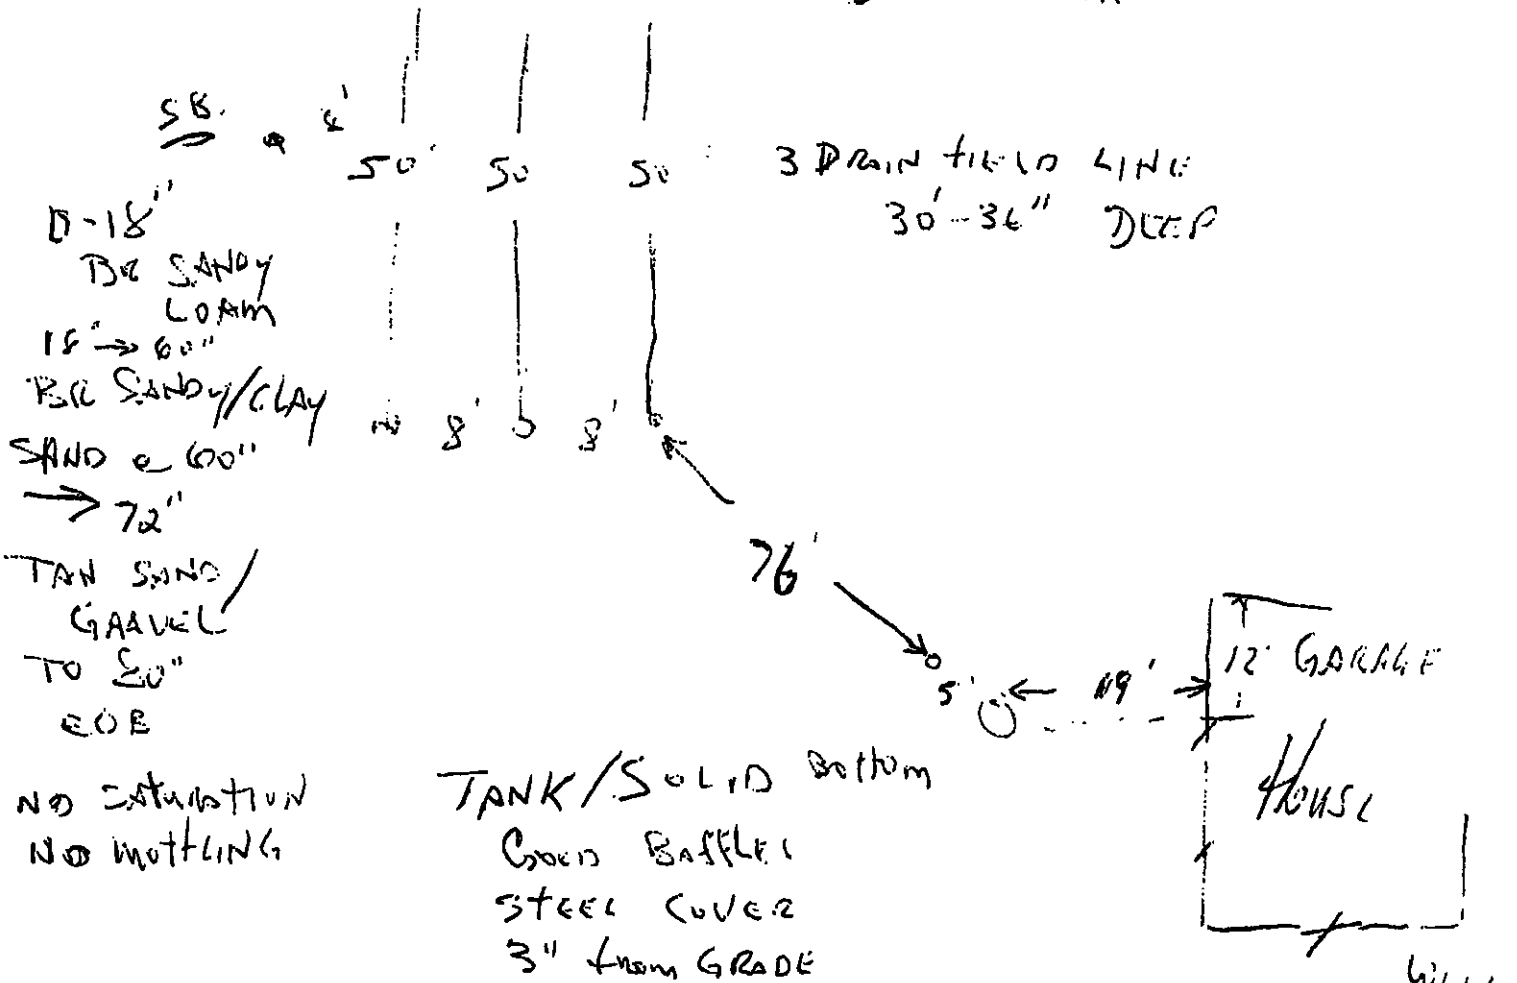 SB. 8'
50' 50 50
3 DRAIN FIELD LINE
30'-36" DEEP
0-18"
BR SANDY
LOAM
18" → 60"
BR SANDY/CLAY
8' 8'
SAND @ 60"
→ 72"
TAN SAND/
GRAVEL
TO 80"
EOB
NO SATURATION
NO MOTTLING
76'
5'
12' GARAGE
HOUSE
TANK/SOLID BOTTOM
GOOD BAFFLES
STEEL COVER
3" from GRADE